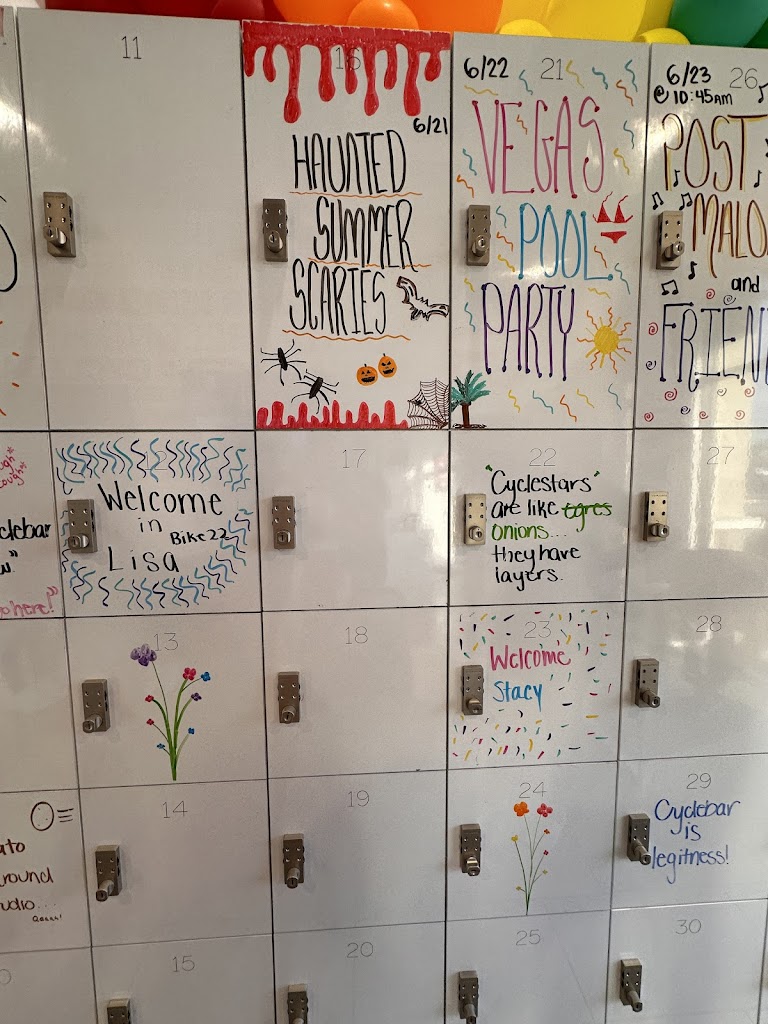 11
16
6/21
HAUNTED
SUMMER
SCARIES
6/22
21
VEGAS
POOL
PARTY
6/23
26
@ 10:45AM
POST
MALO
and
FRIEN
12
Welcome
in
Bike 22
Lisa
17
22
"Cyclestars"
are like ogres
onions...
they have
layers.
27
13
18
23
Welcome
Stacy
28
14
19
24
29
Cyclebar
is
legitness!
ato
round
dio...
15
20
25
30
clebar
o here!